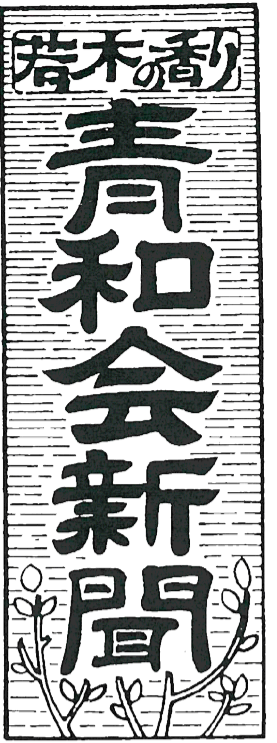 若木の香り
青和会新聞